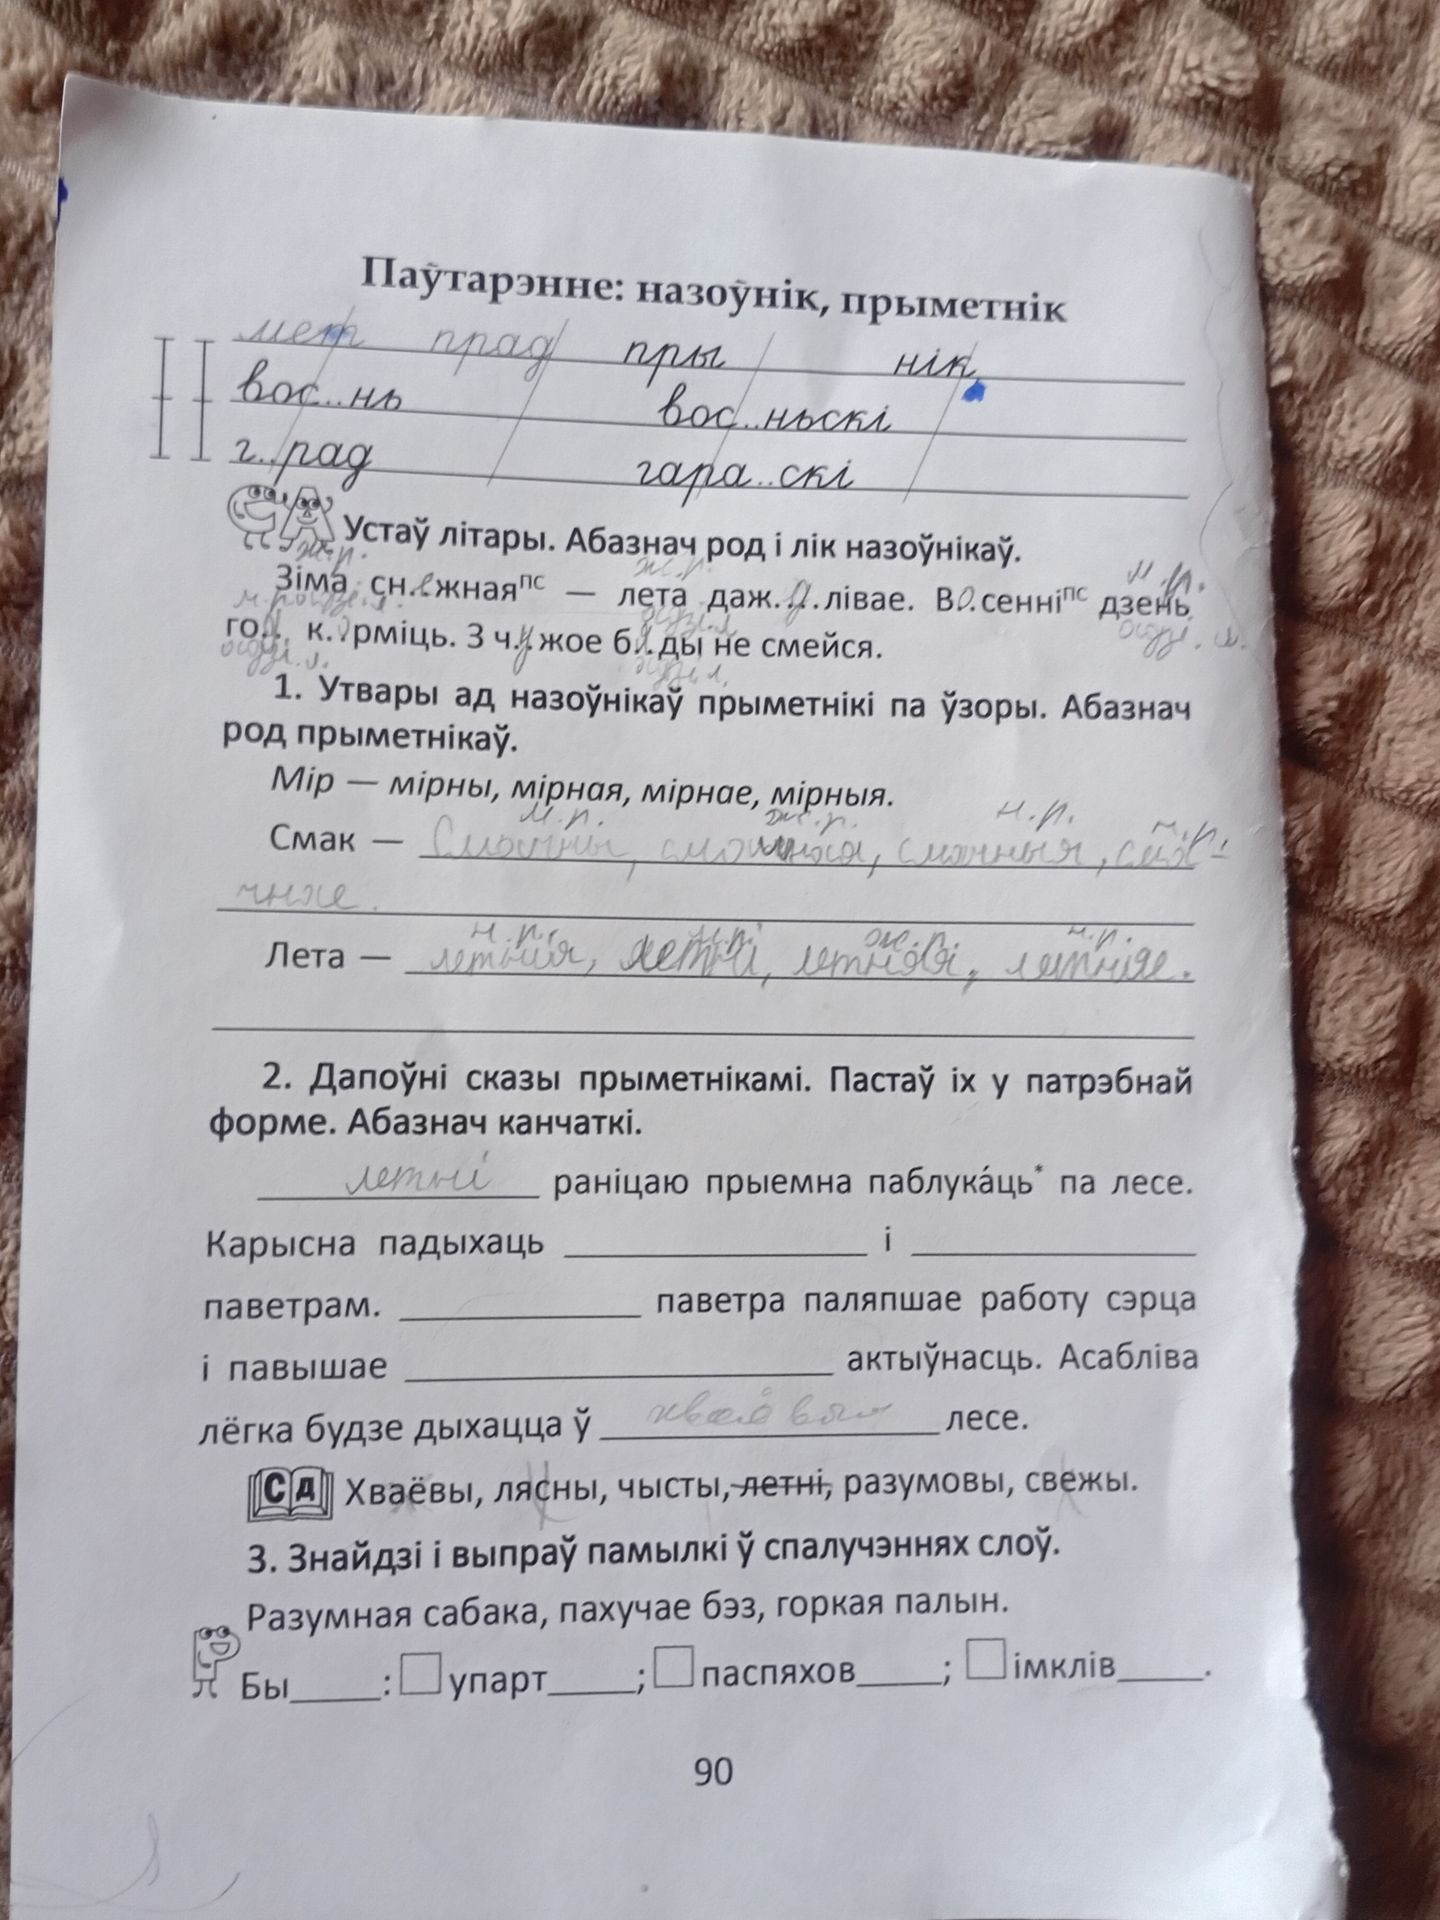 Паўтарэнне: назоўнік, прыметнік
мет прад пры нік
вос..нь вос..ньскі
г..рад гара..скі
Устаў літары. Абазнач род і лік назоўнікаў.
ж.р. ж.р. м.р.
Зіма сн.е.жнаяᵖᶜ — лета даж...лівае. Во.сенніᵖᶜ дзень
го.. к.о.рміць. З ч.у.жое б.я.ды не смейся.
1. Утвары ад назоўнікаў прыметнікі па ўзоры. Абазнач
род прыметнікаў.
Мір — мірны, мірная, мірнае, мірныя.
м.р. ж.р. н.р. н.р.
Смак — Смачны, смачная, смачныя, сма-
чнае.
н.р. м.р. ж.р. н.р.
Лета — летнія, летні, летняя, летняе.
2. Дапоўні сказы прыметнікамі. Пастаў іх у патрэбнай
форме. Абазнач канчаткі.
летні раніцаю прыемна паблука́ць* па лесе.
Карысна падыхаць ______ і ______
паветрам. ______ паветра паляпшае работу сэрца
і павышае ______ актыўнасць. Асабліва
лёгка будзе дыхацца ў ______ лесе.
СД Хваёвы, лясны, чысты, летні, разумовы, свежы.
3. Знайдзі і выпраў памылкі ў спалучэннях слоў.
Разумная сабака, пахучае бэз, горкая палын.
Бы_____: упарт_____; паспяхов_____; імклів_____.
90